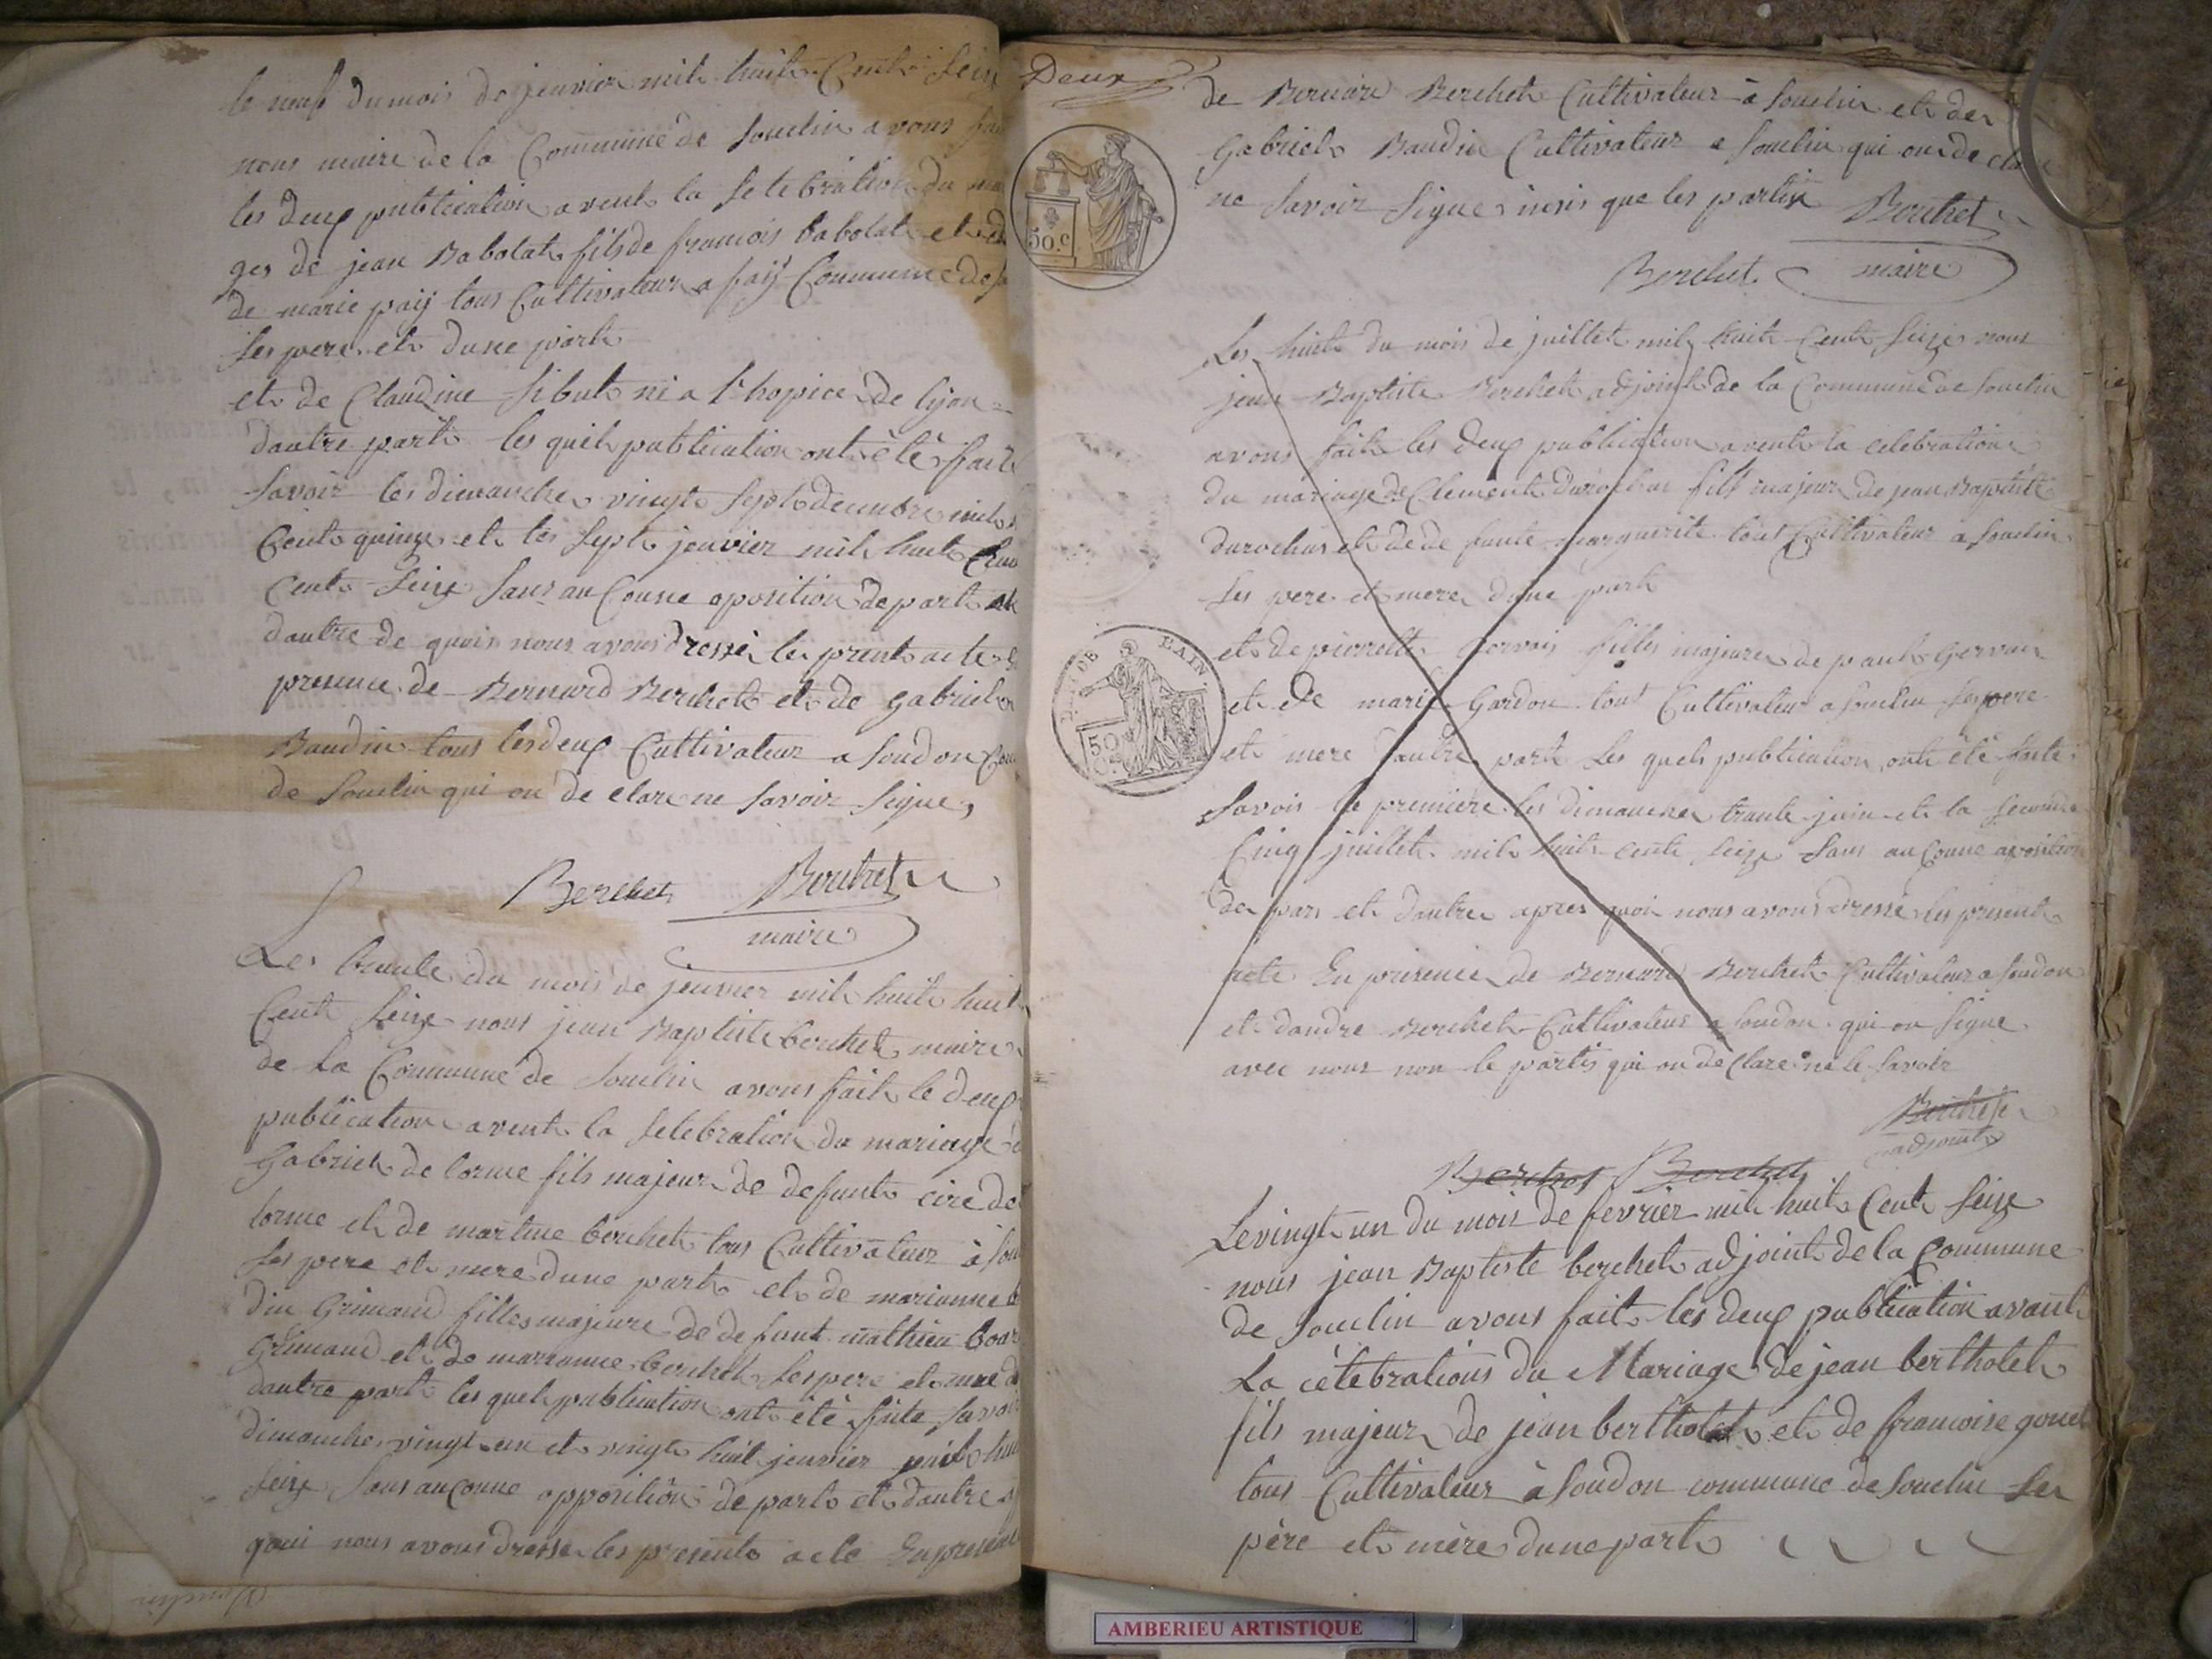 le neuf du mois de jenvier mil huit Cent Seize
nous maire de la Commune de Souclin avons fait
les deux publication avent la Selebration du maria
ges de jean Babolat fils de francois babolat et de
de marie paij tous Cultivateur a faij Commune de
Ses pere et dune part
et de Claudine Sibut né a l'hopice de lijon
dautre part les quels publication ont été faite
Savoir les dimanche vingt Sept decembre mil
Cent quinze et les Sept jenvier mil huit
Cent Seize Sans auCoune oposition de part et
dautre de quois nous avons dressé les present acte
presence de Bernard Berchet et de Gabriel
Baudin tous les deux Cultivateur a Soudon Com
de Souclin qui on de clare ne Savoir Signe
Berchet Berchet
maire
Les trente du mois de jenvier mil huit huit
Cent Seize nous jean Baptiste berchet maire
de la Commune de Souclin avons fait le deux
publication avent la Selebration du mariage
Gabriel de lorme fils majeur de defunt cire de
lorme et de martine berchet tous Cultivateur à Sou
Ses pere et mere dune part et de marianne
din Grimand filles majeure de defunt mathieu
Grimand et de marianne berchet Ses pere et mere
dautre part les quels publication ont été faite Savoir
dimanche vingt un et vingt huit jenvier mil hui
Seize Sans auConne opposition de part et dautre
quoi nous avons dresse les present acte En presence
Deux
de Bernard Berchet Cultivateur à Souclin et de
Gabriel Baudin Cultivateur a Souclin qui on de clare
ne Savoir Signe insis que les partix Berchet
Berchet maire
50.c
Les huit du mois de juillet mil huit Cent Seize nous
jean Baptiste Berchet adjoint de la Commune de Souclin
avons fait les deux publication avent la celebration
du mariage de Clement durochat fils majeur de jean Baptiste
durochat et de de funte marguerite tout Cultivateur a Souclin
Ses pere et mere dune part
et de pierrette Gervais filles majeure de paul Gervais
et de marie Gardon tout Cultivateur a Souclin Ses pere
et mere dautre part Les quels publication ont été faite
Savoir la premiere les dimanche trante juin et la Seconde
Cinq juillet mil huit cent Seize Sans auCoune aposition
de pars et dautre apres quoi nous avons dressé les present
acte En presence de Bernard Berchet Cultivateur a Soudon
et dandre Berchet Cultivateur a Soudon qui on Signe
avec nous non le partis qui on de Clare ne le Savoir
DE L'AIN
50
Berchet
adjoint
Berchet Berchet
Le vingt un du mois de fevrier mil huit Cent Seize
nous jean Baptiste berchet adjoint de la Commune
de Souclin avons fait les deux publication avant
La célébrations du Mariage de jean bertholet
fils majeur de jean bertholet et de francoise
tous Cultivateur à Soudon commune de Souclin Ses
père et mère dune part
AMBERIEU ARTISTIQUE